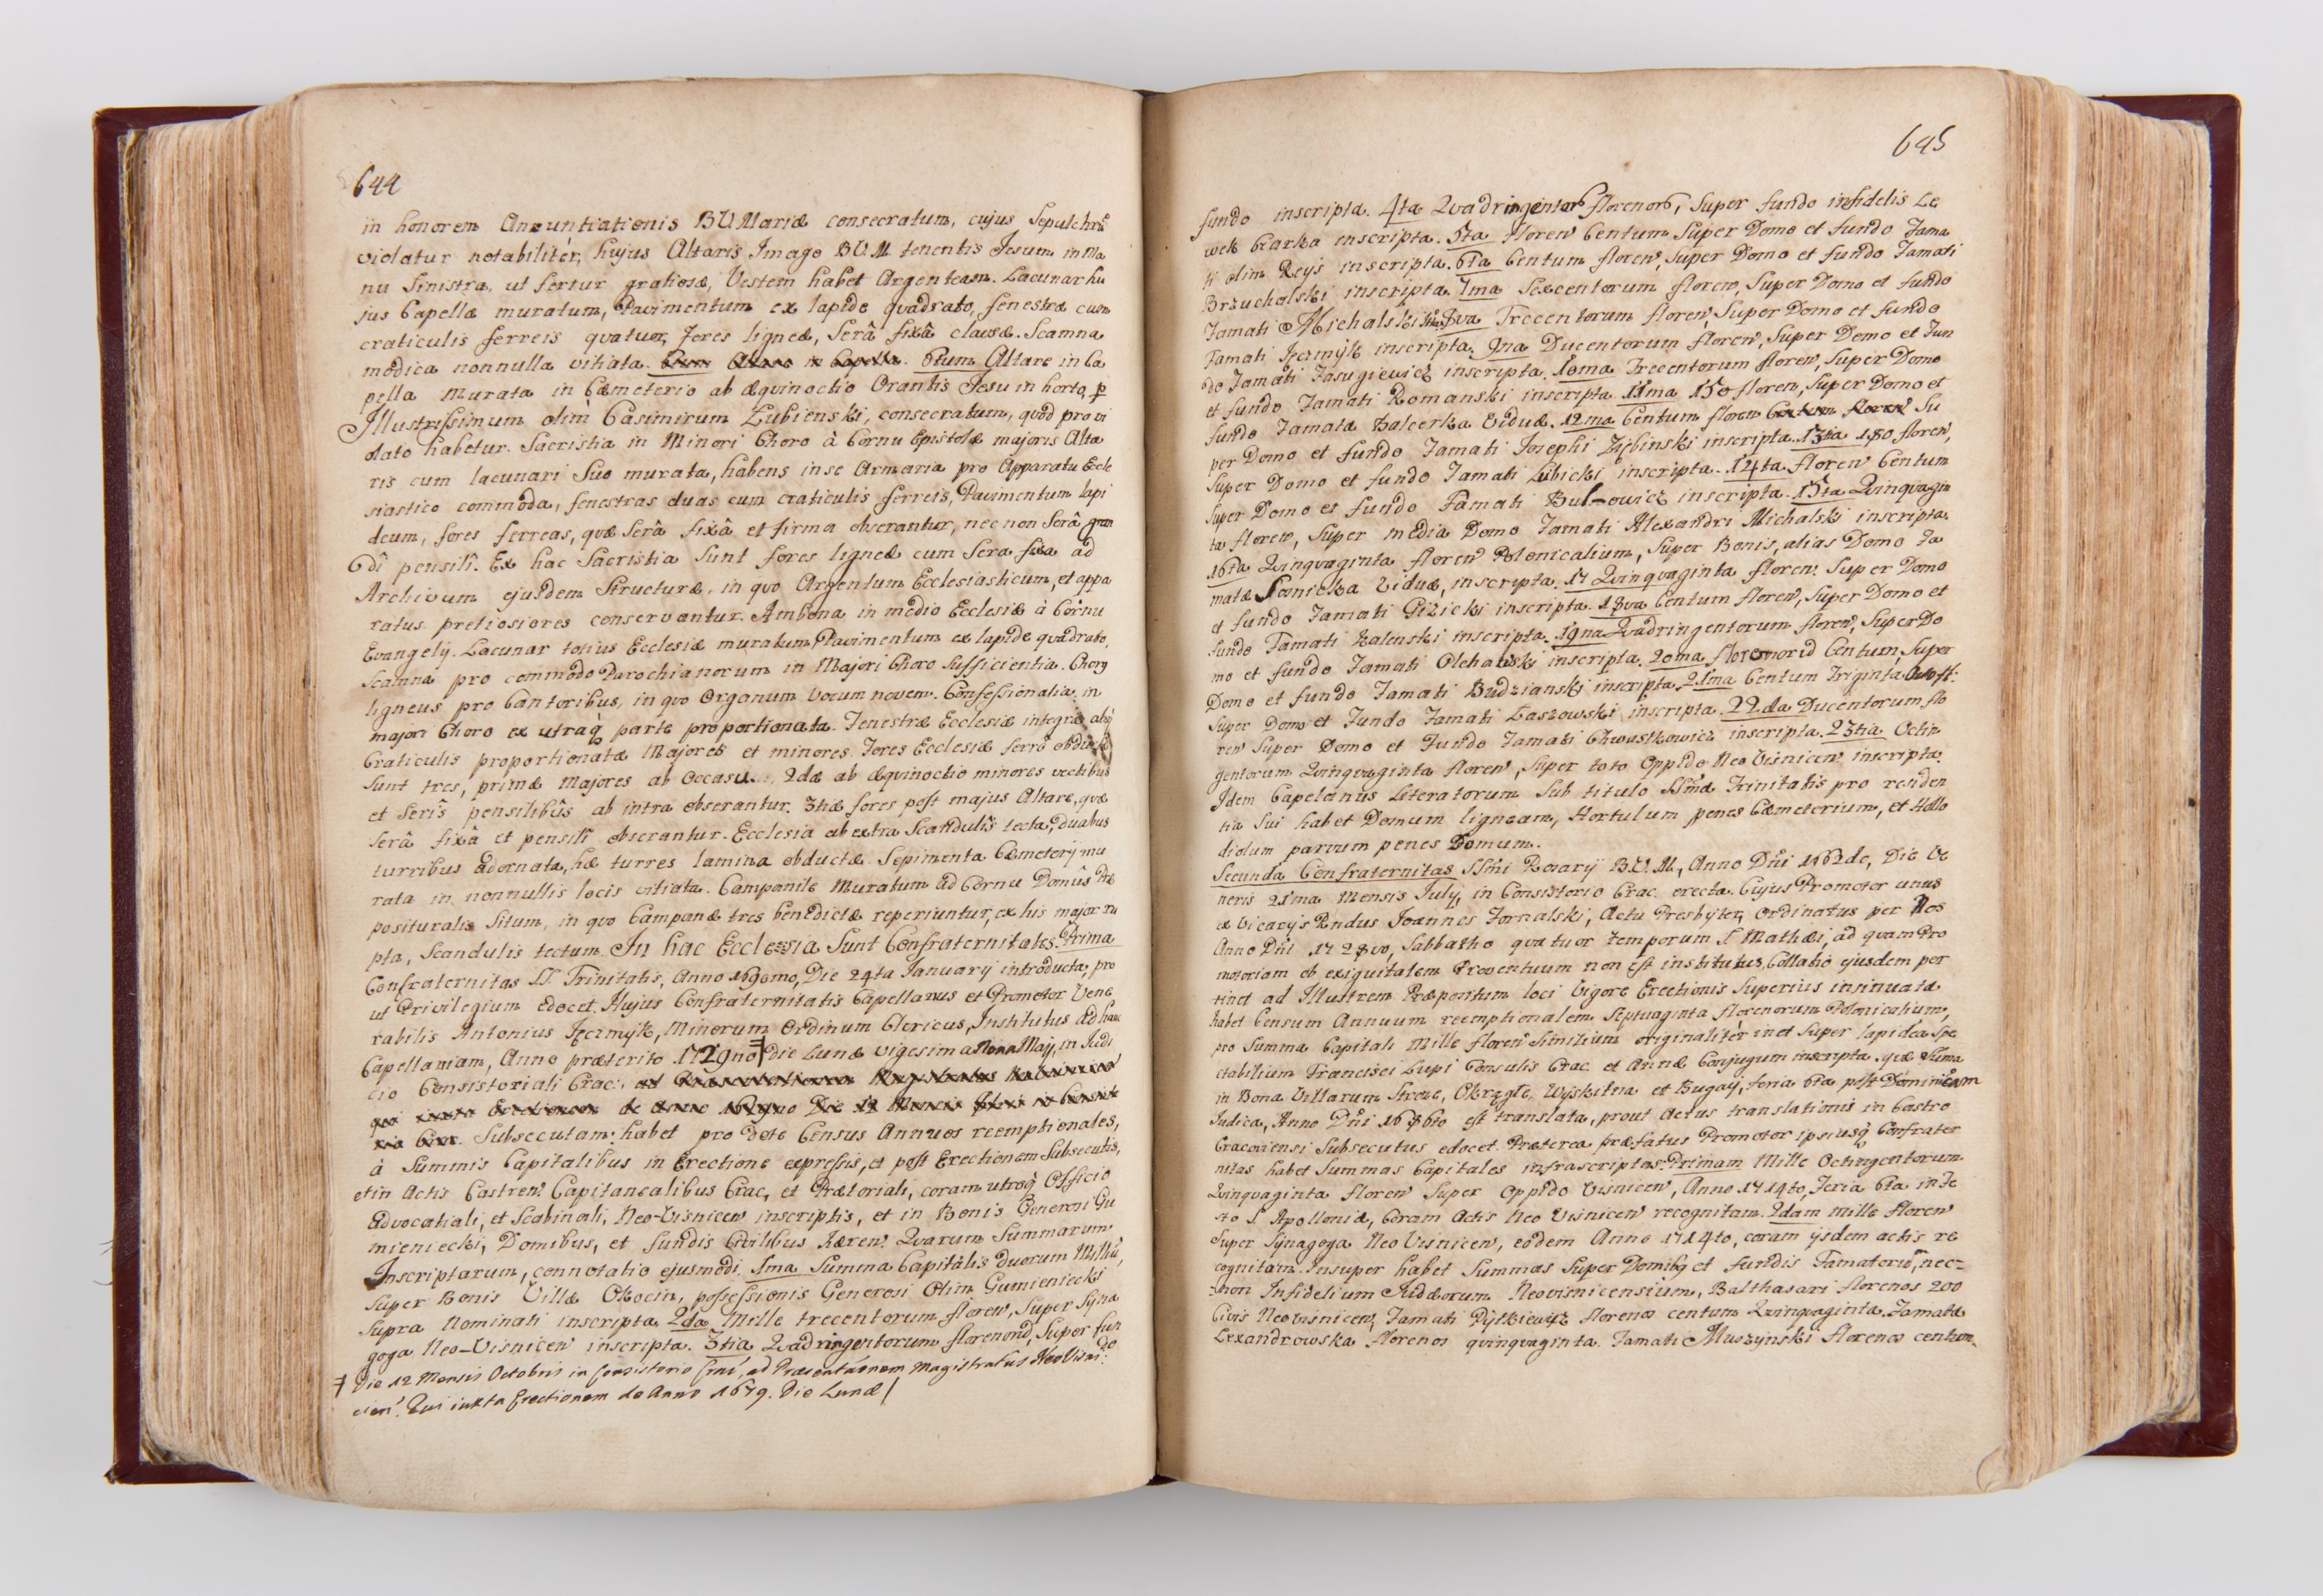 644
in honorem Anuntiationis B V Mariæ consecratum, cujus Sepulchrũ
violatur notabilitèr, hujus Altaris Imago B V. M. tenentis Jesum in Ma
nu Sinistra, ut fertur gratiosæ, Vestem habet Argenteam. Lacunar hu
jus Capellæ muratum, Pavimentum ex lapide quadrato, fenestræ cum
craticulis ferreis quatuor, Fores ligneæ, Serâ fixâ clausæ. Scamna
modica nonnulla vitiata. 6tum Altare in Ca
pella Murata in Cæmeterio ab æquinoctio Orantis Jesu in horto, p
Illustrissimum olim Casimirum Łubienski, consecratum, quod pro vi
olato habetur. Sacristia in Minori Choro à Cornu Epistolæ majoris Alta
ris cum lacunari Suo murata, habens in se Armaria pro Apparatu Eccle
siastico commoda, fenestras duas cum craticulis ferreis, Pavimentum lapi
deum, fores ferreas, quæ Serâ fixâ et firma obserantur, nec non Serâ gran
di pensili. Ex hac Sacristia Sunt fores ligneæ cum Sera fixa ad
Archivum ejusdem Structuræ, in quo Argentum Ecclesiasticum, et appa
ratus pretiosiores conservantur. Ambona in medio Ecclesiæ à Cornu
Evangelij. Lacunar totius Ecclesiæ muratum Pavimentum ex lapide quadrato,
Scamna pro commodo Parochianorum in Majori Choro Sufficientia. Chorg
ligneus pro Cantoribus, in quo Organum Vocum novem. Confessionalia in
majori Choro ex utraq; parte proportionata. Fenestræ Ecclesiæ integræ absq;
Craticulis proportionatæ Majores et minores. Fores Ecclesiæ ferro obductæ
Sunt tres, primæ Majores ab Occasu 2dæ ab æquinoctio minores vectibus
et Serîs pensilibûs ab intra obserantur. 3tiæ fores post majus Altare, quæ
Serâ fixâ et pensilî obserantur. Ecclesia ab extra Scandulîs tecta, duabus
turribus adornata, hæ turres lamina obductæ. Sepimenta Cæmeterij mu
rata in nonnullis locis vitiata. Campanile Muratum ad Cornu Domûs Præ
posituralis Situm, in quo Campanæ tres benedictæ reperiuntur, ex his major ru
pta, Scandulis tectum. In hac Ecclessia Sunt Confraternitates. Prima
Confraternitas SS. Trinitatis, Anno 1690mo, Die 24ta Ianuarij introducta, pro
ut Privilegium edocet. Hujus Confraternitatis Capellanus et Promotor Vene
rabilis Antonius Jęczmyk, Minorum Ordinum Clericus, Institutus ad hanc
Capellaniam, Anno præterito 1729no Die Lunæ vigesima Nona Maij, in Iudi
cio Consistoriali Crac:
Subsecutam: habet pro dote Census Annuos reemptionales,
à Summis Capitalibus in Erectione expressis, et post Erectionem Subsecutis,
et in Actis Castren' Capitanealibus Crac, et Prætoriali, coram utroq; Officio
advocatiali, et Scabinali, Neo-Visnicen' inscriptis, et in Bonis Generosi Gu
mieniecki, Domibus, et fundis Civilibus hæren'. Quarum Summarum
Inscriptarum, connotatio ejusmodi. 1ma Summa Capitalis duorum Milliũ,
Super Bonis Villæ Okocin, possessionis Generosi Olim Gumieniecki
Supra Nominati inscripta 2da Mille trecentorum floren', Super Syna
goga Neo-Visnicen' inscripta. 3tia Quadringentorum florenorũ, Super fun
do
Die 12 Mensis Octobris in Consistorio ad Præsentationem Magistratus Neo Visni:
cien'. Qui iuxta Erectionem de Anno 1679. Die Lunæ
645
fundo inscripta. 4ta Quadringentor florenorũ, Super fundo infidelis Le
wek Ciarka inscripta. 5ta floren' Centum Super Domo et fundo Fama
ti olim Reys inscripta. 6ta Centum floren', Super Domo et fundo Famati
Brzuchalski inscripta. 7ma Sexcentorum floren, Super Domo et fundo
Famati Michalski 8va Trecentorum floren', Super Domo et fundo
Famati Jęczmyk inscripta. 9na Ducentorum floren', Super Domo et Fun
do Famati Jasugiewicz inscripta. 10ma Trecentorum floren', Super Domo
et fundo Famati Romanski inscripta. 11ma 150 floren, Super Domo et
fundo Famatæ Balcerka Viduæ. 12ma Centum floren' Su
per Domo et fundo Famati Josephi Zięбinski inscripta. 13tia 180 floren',
Super Domo et fundo Famati Lubicki inscripta. 14ta floren' Centum
Super Domo et fundo Famati inscripta. 15ta Quinquagin
ta floren, Super media Domo Famati Alexandri Michalski inscripta.
16ta Quinquaginta floren' Polonicalium, Super Bonis, alias Domo Fa
matæ Viduæ, inscripta. 17 Quinquaginta floren: Super Domo
et fundo Famati Gizicki inscripta. 18va Centum floren', Super Domo et
fundo Famati Zalenski inscripta. 19na Quadringentorum floren', Super Do
mo et fundo Famati Olchawski inscripta. 20ma florenorũ Centum, Super
Domo et fundo Famati Budzianski inscripta. 21ma Centum Triginta Octo fl:
Super Domo et Fundo Famati Laszowski inscripta. 22da Ducentorum flo
ren' Super Domo et Fundo Famati Chwustkowicz inscripta. 23tia Octin
gentorum Quinquaginta floren', Super toto Oppido Neo Visnicen' inscripta.
Idem Capelanus Literatorum Sub titulo SSmæ Trinitatis pro residen
tia Sui habet Domum ligneam, Hortulum penes Cæmeterium, et Hallo
diolum parvum penes Domum.
Secunda Confraternitas SSmi Rosarij B.V.M., Anno Dñi 1662do, Die Ve
neris 21ma Mensis Iulij, in Consistorio Crac. erecta. Cujus Promotor unus
ex Vicarijs Rndus Ioannes Fornalski, Actu Presbyter, Ordinatus per Nos
Anno Dñi 1728vo, Sabbatho quatuor Temporum S Mathæi, ad quam Pro
motoriam ob exiguitatem Proventuum non est institutus, Collatio ejusdem per
tinet ad Illustrem Præpositum loci Vigore Erectionis Superius insinuatæ,
habet Censum Annuum reemptionalem Septuaginta florenorum Polonicalium,
pro Summa Capitali Mille floren' Similium originalitèr in et Super lapidea Spe
ctabilium Francisci Lupi Consulis Crac. et Annæ Conjugum inscripta, quæ Suma
in Bona Villarum Stroze, Okrągłe, Wyskitna et Bugaÿ, feria 6ta post Dominicam
Iudica, Anno Dñi 1686to est translata, prout Actus translationis in Castro
Cracoviensi Subsecutus edocet. Præterea præfatus Promotor ipsiusq; Confrater
nitas habet Summas Capitales infrascriptas. Primam Mille Octingentorum
Quinquaginta floren' Super Oppido Visnicen', Anno 1714to, Feria 6ta in Fe
sto S Apolloniæ, Coram Actis Neo Visnicen' recognitam. 2dam mille floren'
Super Synagoga Neo Visnicen', eodem Anno 1714to, coram ijsdem actis re
cognitam. Insuper habet Summas Super Domibg et fundis Famatorũ, nec-
non Infidelium Iudæorum Neovisnicensium, Balthasari florenos 200
Civis Neovisnicen', Famati Pytkiewicz florenos centum Quinquaginta. Famatæ
Lexandrowska florenos quinquaginta. Famati Muszynski florenos centum.